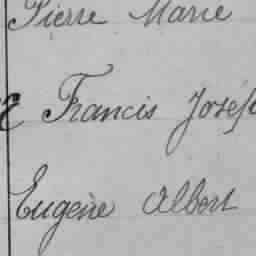 Pierre Marie
Francis Joseph
Eugène Albert